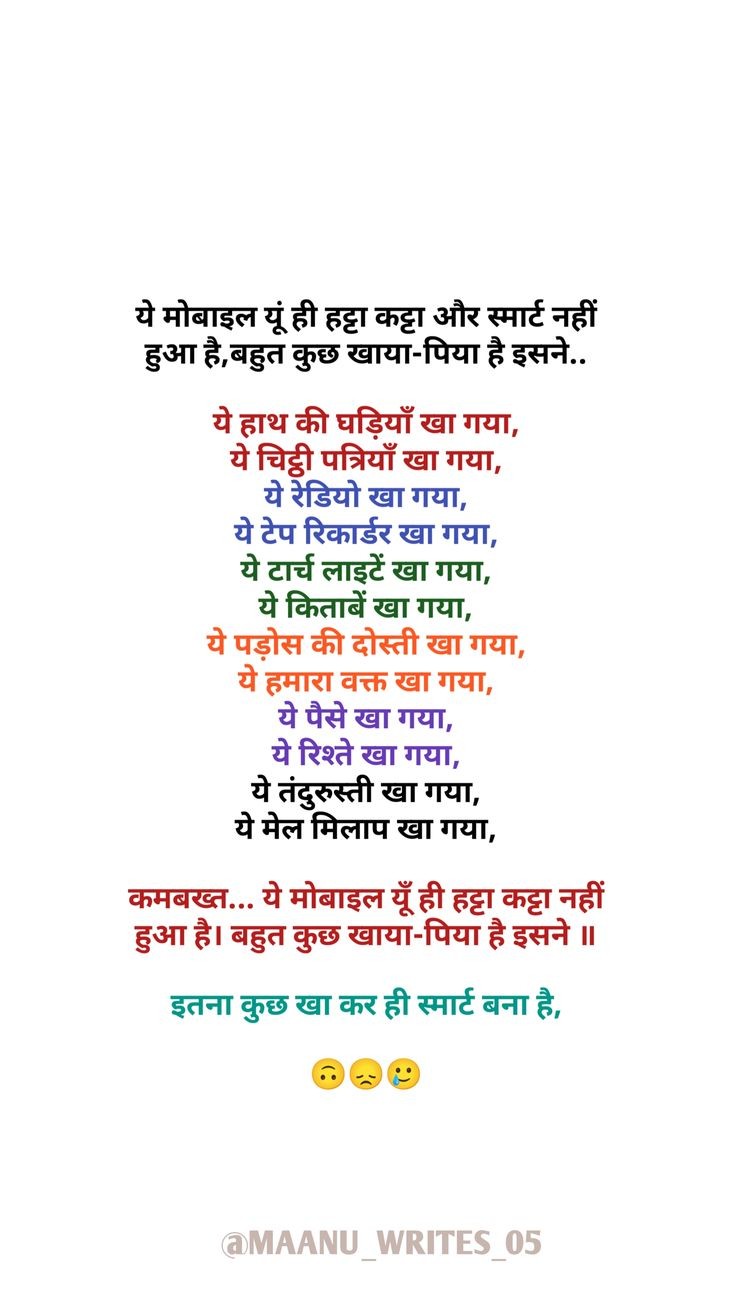 ये मोबाइल यूं ही हट्टा कट्टा और स्मार्ट नहीं
हुआ है,बहुत कुछ खाया-पिया है इसने..
ये हाथ की घड़ियाँ खा गया,
ये चिट्ठी पत्रियाँ खा गया,
ये रेडियो खा गया,
ये टेप रिकार्डर खा गया,
ये टार्च लाइटें खा गया,
ये किताबें खा गया,
ये पड़ोस की दोस्ती खा गया,
ये हमारा वक्त खा गया,
ये पैसे खा गया,
ये रिश्ते खा गया,
ये तंदुरुस्ती खा गया,
ये मेल मिलाप खा गया,
कमबख्त... ये मोबाइल यूँ ही हट्टा कट्टा नहीं
हुआ है। बहुत कुछ खाया-पिया है इसने ॥
इतना कुछ खा कर ही स्मार्ट बना है,
🙃😞🥲
@MAANU_WRITES_05